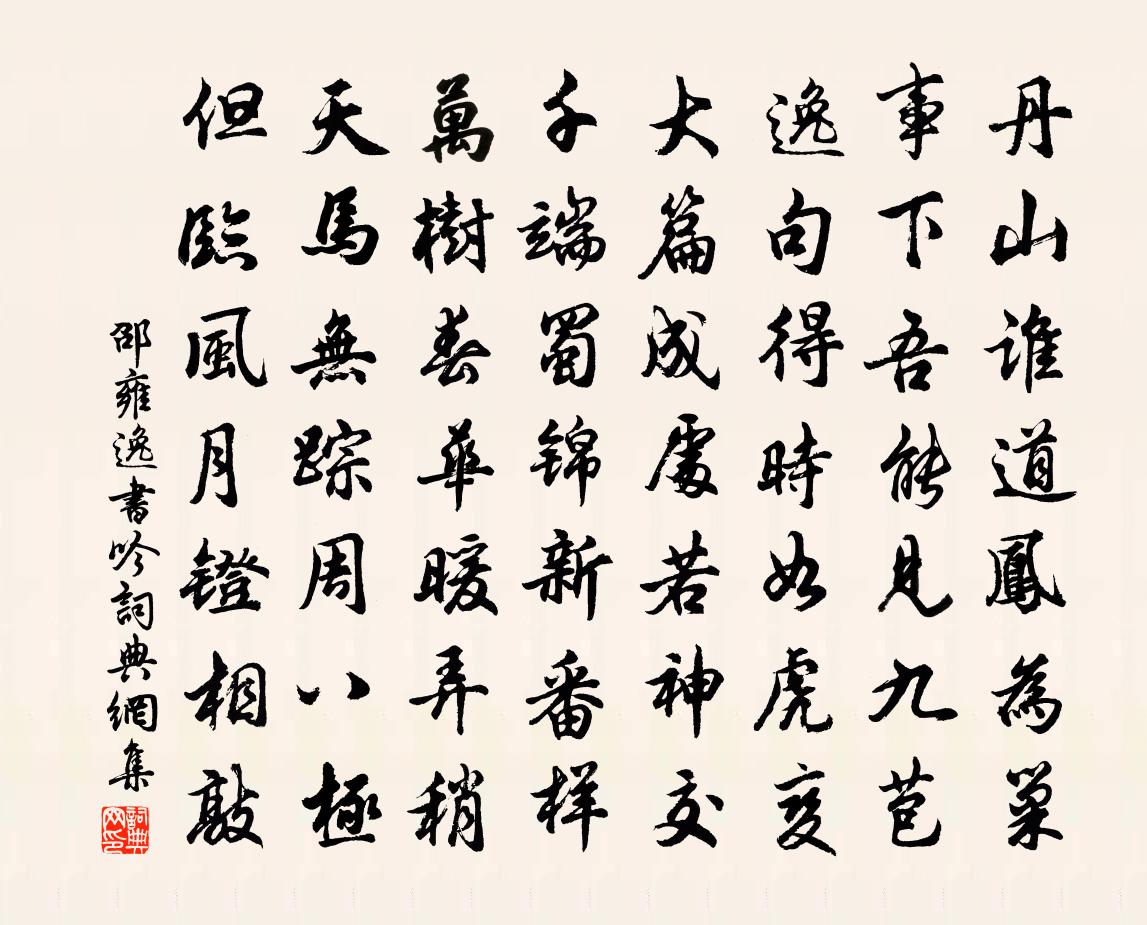 丹山誰道鳳為巢
事下吾能見九苞
逸句得時如虎變
大篇成處若神交
千端蜀錦新番樣
萬樹春華暖弄梢
天馬無踪周八極
但臨風月鐙相敲
邵雍逸書吟詞典網集
詞典網印